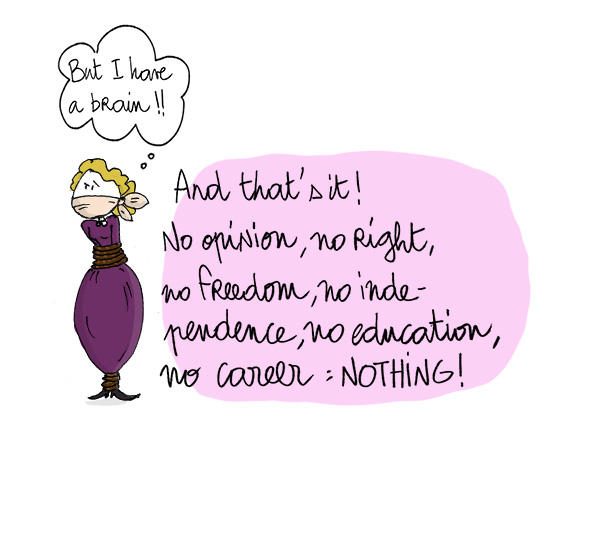 But I have
a brain !!
And that's it !
No opinion, no right,
no freedom, no inde-
pendence, no education,
no career : NOTHING !